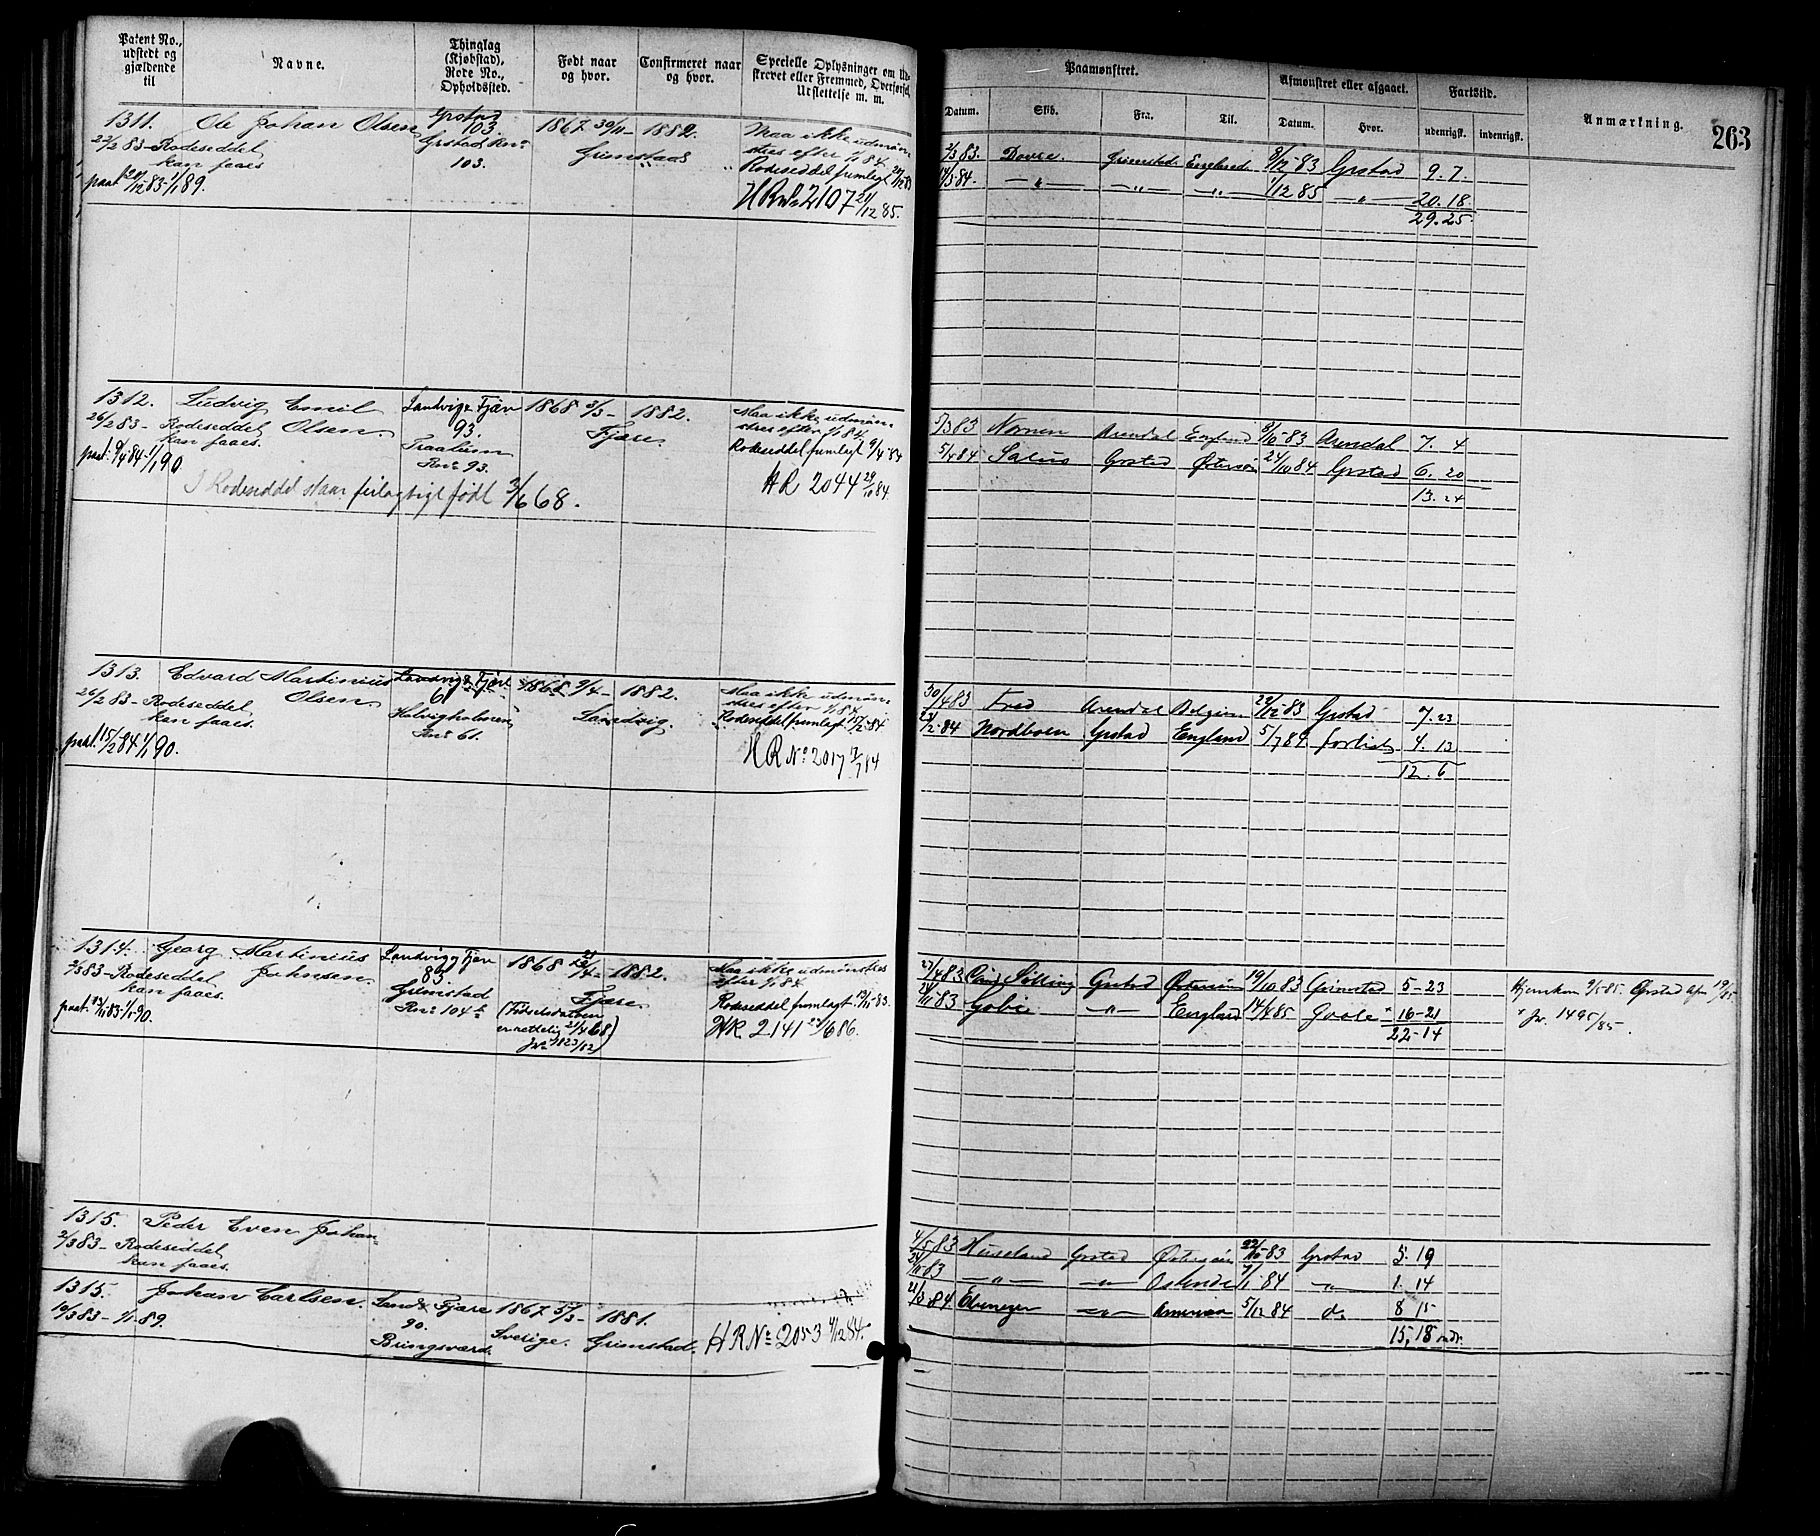 Patent No., udstedt og gjældende til
Navne.
Thinglag (Kjøbstad), Rode No., Opholdssted.
Født naar og hvor.
Confirmeret naar og hvor.
Specielle Oplysninger om Ud-
skrevet eller Fremmed, Overførsel,
Udslettelse m. m.
Paamønstret.
Afmønstret eller afgaaet.
Fartstid.
Anmærkning.
263
Datum.
Skib.
Fra.
Til.
Datum.
Hvor.
udenrigsk.
indenrigsk.
1311. Ole Johan Olsen Grstad 103. 1867 30/11 - 1882. Maa ikke udmøn-
27/2 83 - Rodeseddel Grstads Rno Grimstad " " stres efter 1/1 84.
kan faaes 103. Rodeseddel fremlagt
paat 1/1 89. HRNo 2107 21/12 85.
2/3 83. Dovre. Grimstad England 8/12 83 Grstad 9. 7.
84. — " — — " — — " — 1/12 85 — " — 20. 18
29. 25.
1312. Ludvig Emil Landvig & Fjære 1868 3/3 - 1882. Maa ikke udmøn-
26/2 83 - Rodeseddel Olsen. 93. Fjære. stres efter 1/1 84.
kan faaes. Traalum Rodeseddel fremlagt 9/4 84
paat. 9/4 84 - 1/1 90 Rno 93. HR 2044 29/10 84
I Rodeseddel staar feilagtigt født 3/6 68.
5/3 83 Nornen Arendal England 8/10 83 Arendal 7. 4
5/4 84 Salus Grstad Østersøn 24/10 84 Grstad 6. 20
13. 24
1313. Edvard Martinius Landvig & Fjære 1868 9/4 - 1882. Maa ikke udmøn-
26/2 83 - Rodeseddel Olsen 61 Landvig. stres efter 1/1 84.
kan faaes. Halvigholmen Rodeseddel fremlagt 15/2 84
paat. 15/2 84 1/1 90. Rno 61. HR No 2017 84
30/4 83 Fred Arendal Belgien 83 Grstad 7. 23
84 Nordboen Grstad England 5/7 84 forlist 4. 13
12. 6
1314. Georg Martinius Landvig & Fjære 1868 - 1882. Maa ikke udmønstres
2/3 83 - Rodeseddel Johnsen. 83. Fjære efter 1/1 84.
kan faaes. Grimstad (Fødselsdatoen Rodeseddel fremlagt 83.
paat. 83 - 1/1 90. Rno 104 er rettelig 21/4 68) HR 2141 86.
27/4 83 Grstad Østersøn 19/10 83 Grimstad 5 - 23
83 — " — England 14/4 85 Goole 16 - 21
22 - 14
Jr. 1495/85.
1315. Peder Even Johan-
2/3 83 - Rodeseddel
kan faaes.
1315. Johan Carlsen. Land & Fjære 1867 - 1881.
10/3 83 - 1/1 89. 90. Sverige. Grimstad. HRNo 2053 84.
Bringsværd.
4/5 83 Huseland Grstad Østersøen 22/10 83 Grstad 5. 19
83 — " — — " — Ostende 84 " 1. 14
84 Ebenezer — " — America 5/12 84 do 8 15
15, 18 mdr.